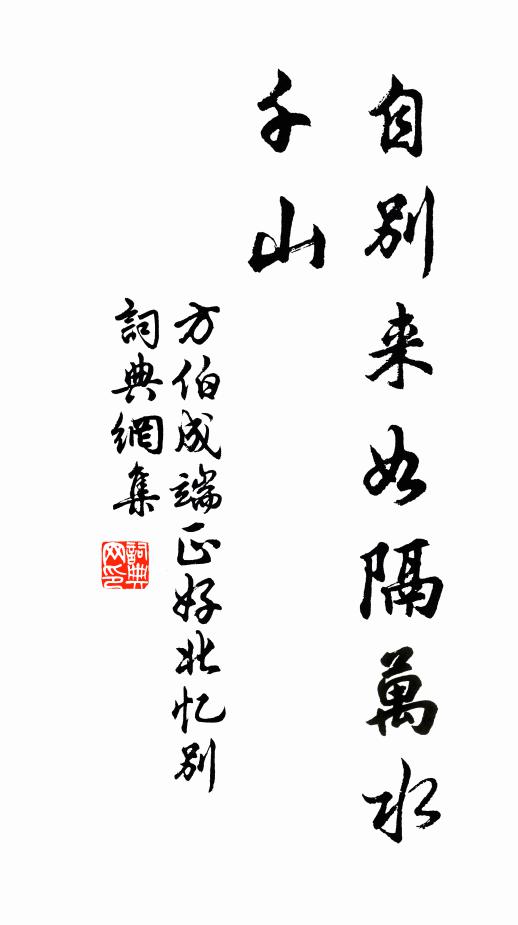 自别来如隔萬水
千山
方伯成端正好北忆别
詞典網集
詞典网印